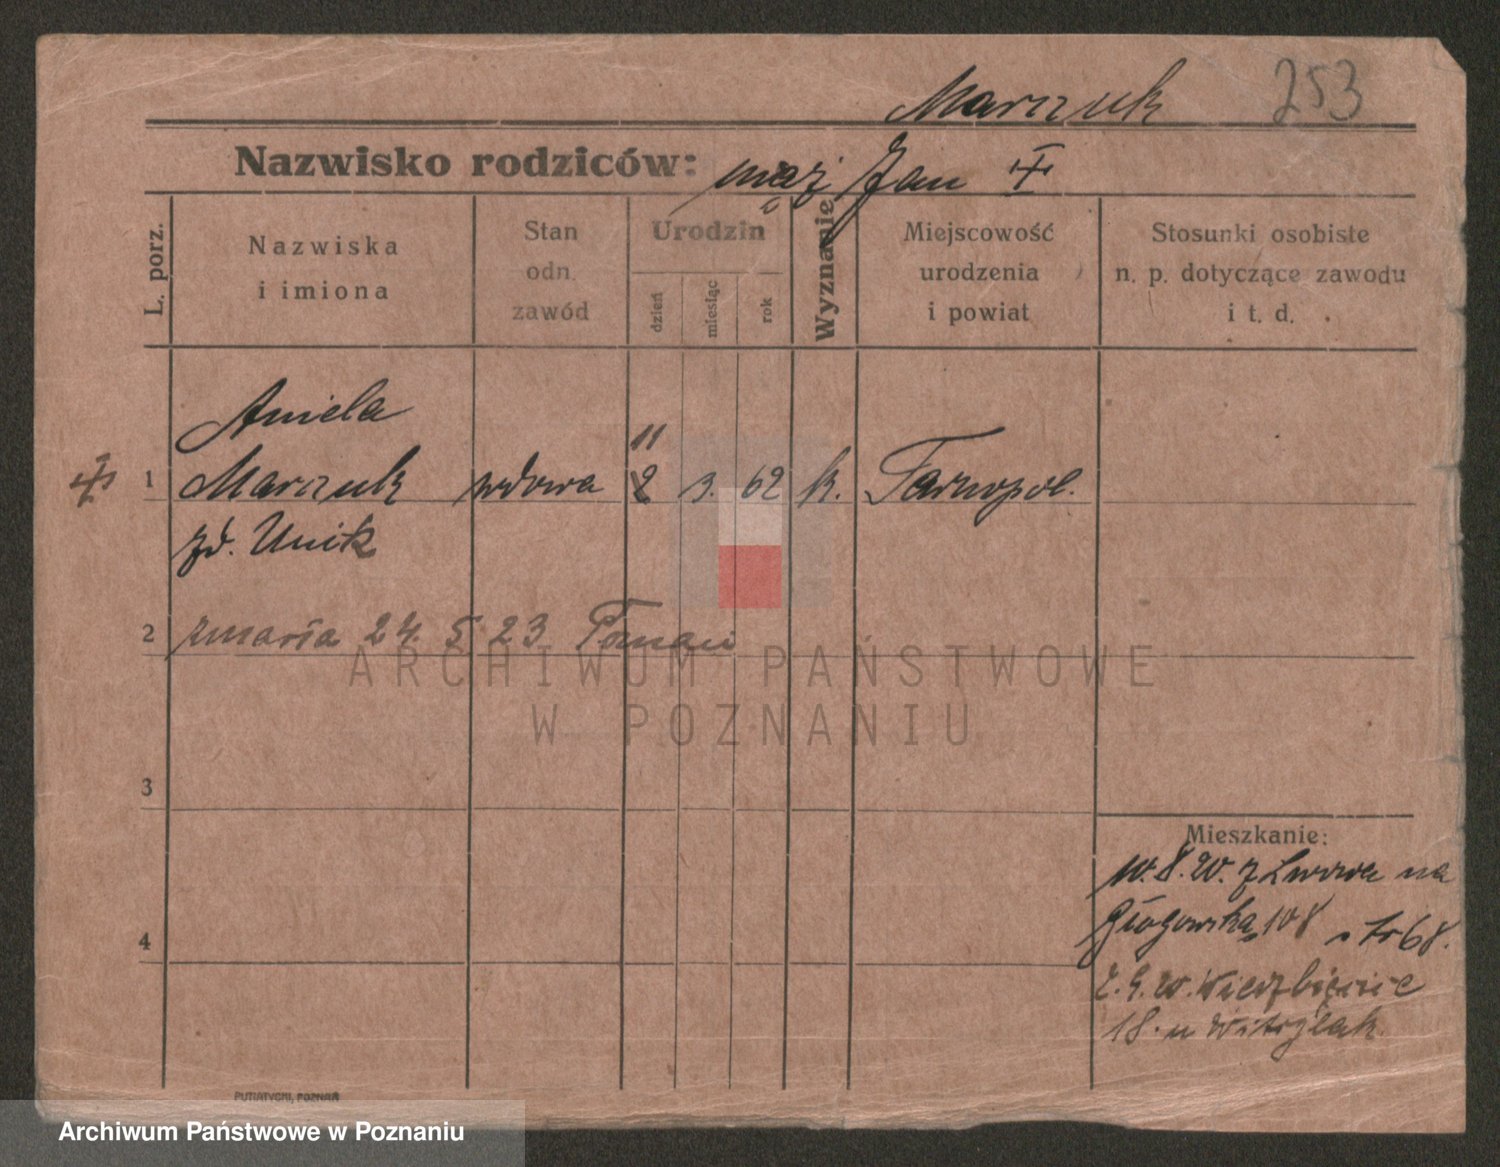 Marczuk 253
Nazwisko rodziców: mąż Jan
L. porz.
Nazwiska
i imiona
Stan
odn.
zawód
Urodzin
dzień
miesiąc
rok
Wyznanie
Miejscowość
urodzenia
i powiat
Stosunki osobiste
n. p. dotyczące zawodu
i t. d.
Aniela
11
1 Marczuk wdowa 2 3. 62 k. Tarnopol.
zd. Unik
2 zmarła 24. 5 23 Poznań
ARCHIWUM PAŃSTWOWE
W POZNANIU
3
Mieszkanie:
10. 8. 20. z Lwowa na
Głogowska 108
68.
4
18. u Witczak
PUTIATYCKI, POZNAŃ
Archiwum Państwowe w Poznaniu